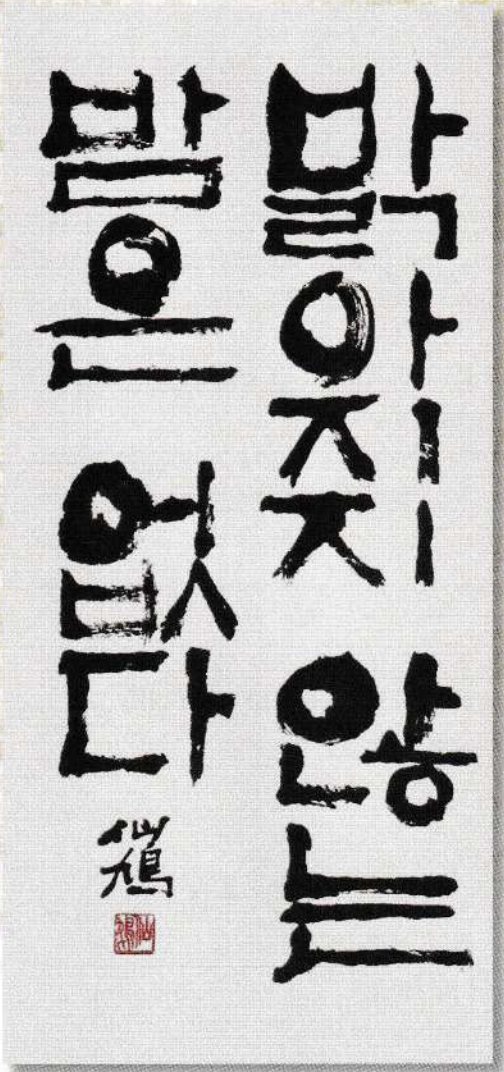 밝아지지 않는
밤은 없다